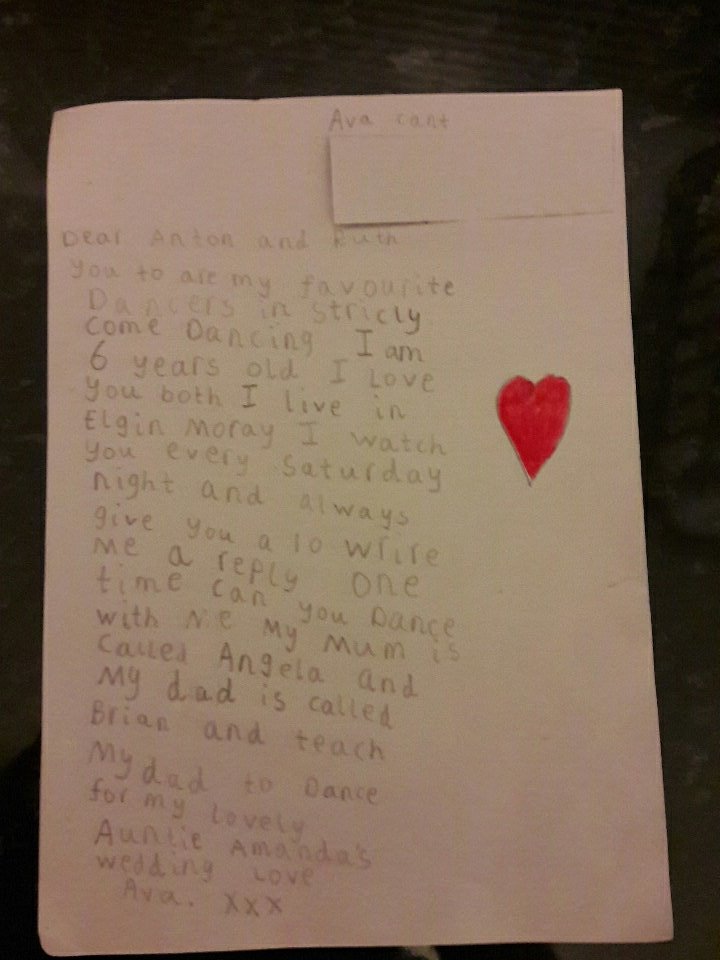 Ava cant
Dear Anton and Ruth
you to are my favourite
Dancers in stricly
come Dancing I am
6 years old I Love
you both I live in
Elgin Moray I watch
you every Saturday
night and always
give you a 10 write
me a reply one
time can you Dance
with Me My Mum is
called Angela and
My dad is called
Brian and teach
My dad to Dance
for my Lovely
Auntie Amanda's
wedding Love
Ava. xxx